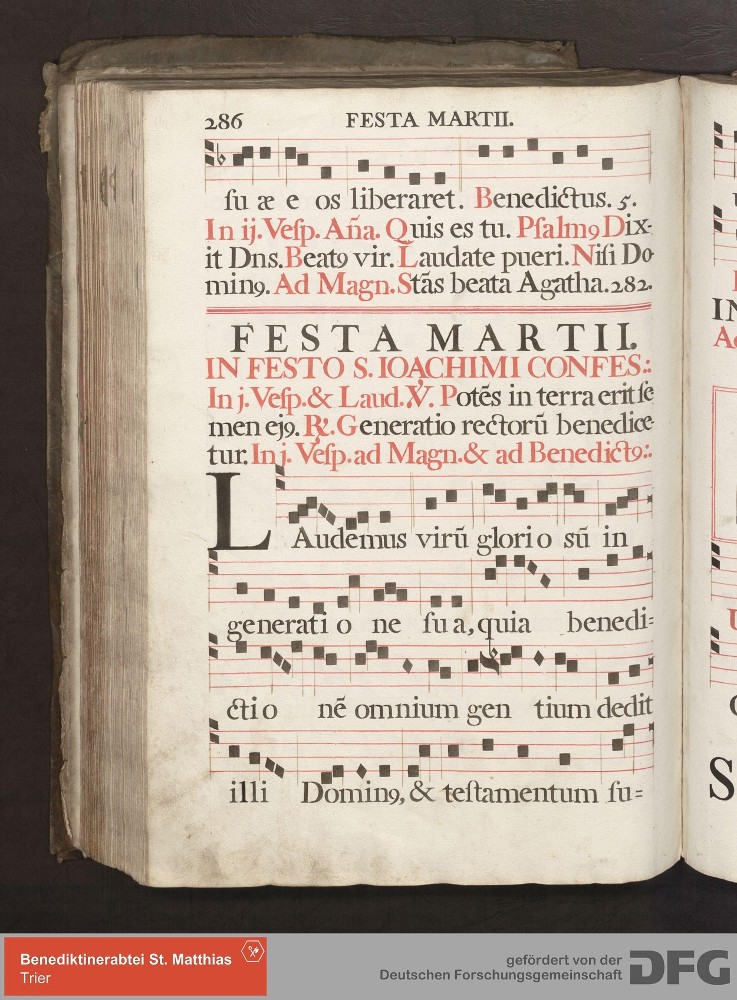 286 FESTA MARTII.
ſu æ e os liberaret. Benedictus. 5.
In ij. Veſp. Aña. Quis es tu. Pſalmꝯ Dix-
it Dns. Beatꝯ vir. Laudate pueri. Niſi Do
minꝯ. Ad Magn. Stãs beata Agatha. 282.
FESTA MARTII.
IN FESTO S. IOACHIMI CONFES:.
In j. Veſp. & Laud. ℣. Potẽs in terra erit ſe
men ejꝯ. ℟. Generatio rectorũ benedice-
tur. In j. Veſp. ad Magn. & ad Benedictꝯ:.
LAudemus virũ glorio sũ in
generati o ne ſu a, quia benedi=
ctio nẽ omnium gen tium dedit
illi Dominꝯ, & teſtamentum ſu=
U
IN
S
Benediktinerabtei St. Matthias
Trier
gefördert von der
Deutschen Forschungsgemeinschaft
DFG